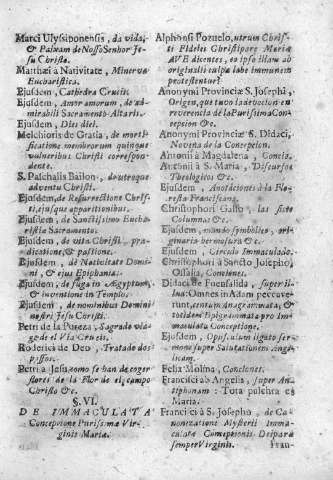 Marci Ulyssiponensis, da vida,
& Paixam de Nosso Senhor Je-
su Christo.
Matthæi a Nativitate, Minerva
Eucharistica.
Ejusdem, Cathedra Crucis.
Ejusdem, Amor amorum, de ad-
mirabili Sacramento Altaris.
Ejusdem, Dies diei.
Melchioris de Gratia, de morti-
ficatione membrorum quinque
vulneribus Christi correspon-
dente.
S. Paschalis Bailon, de utroque
adventu Christi.
Ejusdem, de Resurrectione Chris-
ti, ejusque apparitionibus.
Ejusdem, de Sanctissimo Eucha-
ristiæ Sacramento.
Ejusdem, de vita Christi, præ-
dicatione, & passione.
Ejusdem, de Nativitate Domi-
ni, & ejus Epiphania.
Ejusdem, de fuga in Ægyptum,
& inventione in Templo.
Ejusdem, de nominibus Domini
nostri Jesu Christi.
Petri de la Sagrado via-
ge de el Via Crucis.
Roderici de Deo, Tratado dos
passos.
Petri a Jesu, como se han de coger
flores de la Flor de el campo
Christo &c.
§. VI.
DE IMMACULATA
Conceptione Purissimæ Vir-
ginis Mariæ.
Alphonsi Pozuelo, utrum Chris-
ti Fideles Christiparæ Mariæ
AVE dicentes, eo ipso illam ab
originali culpa labe immunem
protestentur?
Anonymi Provinciæ S. Josephi,
Origen, que tuvo la devocion en
reverencia de la Purissima Con-
cepcion &c.
Anonymi Provinciæ S. Didaci,
Novena de la Concepcion.
Antonii a Magdalena, Concia.
Antonii a S. Maria, Discursos
Theologicos &c.
Ejusdem, Anotaciones à la Flo-
resta Franciscana.
Christophori Gasso, las siete
Columnas &c.
Ejusdem, mundo symbolico, ori-
ginaria hermosura &c.
Ejusdem, Circulo Immaculado.
Christophori à Sancto Josepho,
Ossalia, Conciones.
Didaci de Fuensalida, super il-
lud: Omnes in Adam peccave-
runt, centum Anagrammata, &
totidem Epigrammata pro Im-
maculata Conceptione.
Ejusdem, Opusculum ligato ser-
mone super Salutationem Ange-
licam.
Felix Molina, Conciones.
Francisci ab Angelis, super An-
tiphonam: Tota pulchra es
Maria.
Francisci à S. Josepho, de Ca-
nonizatione Mysterii Imma-
culatæ Conceptionis Deiparæ
semper Virginis. Fran-